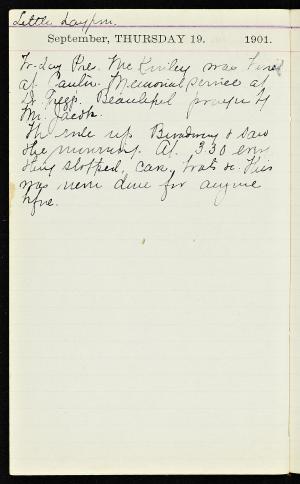 Little Laypm.
September, THURSDAY 19. 1901.
To-day Pre. McKinley was buried
at Canton. Memorial service at
Dr. Beautiful prayer of
Mr. Jacob.
up Broadway & saw
the mourning. At 3.30 every
thing stopped, cars, boats &c. This
was never done for anyone
before.